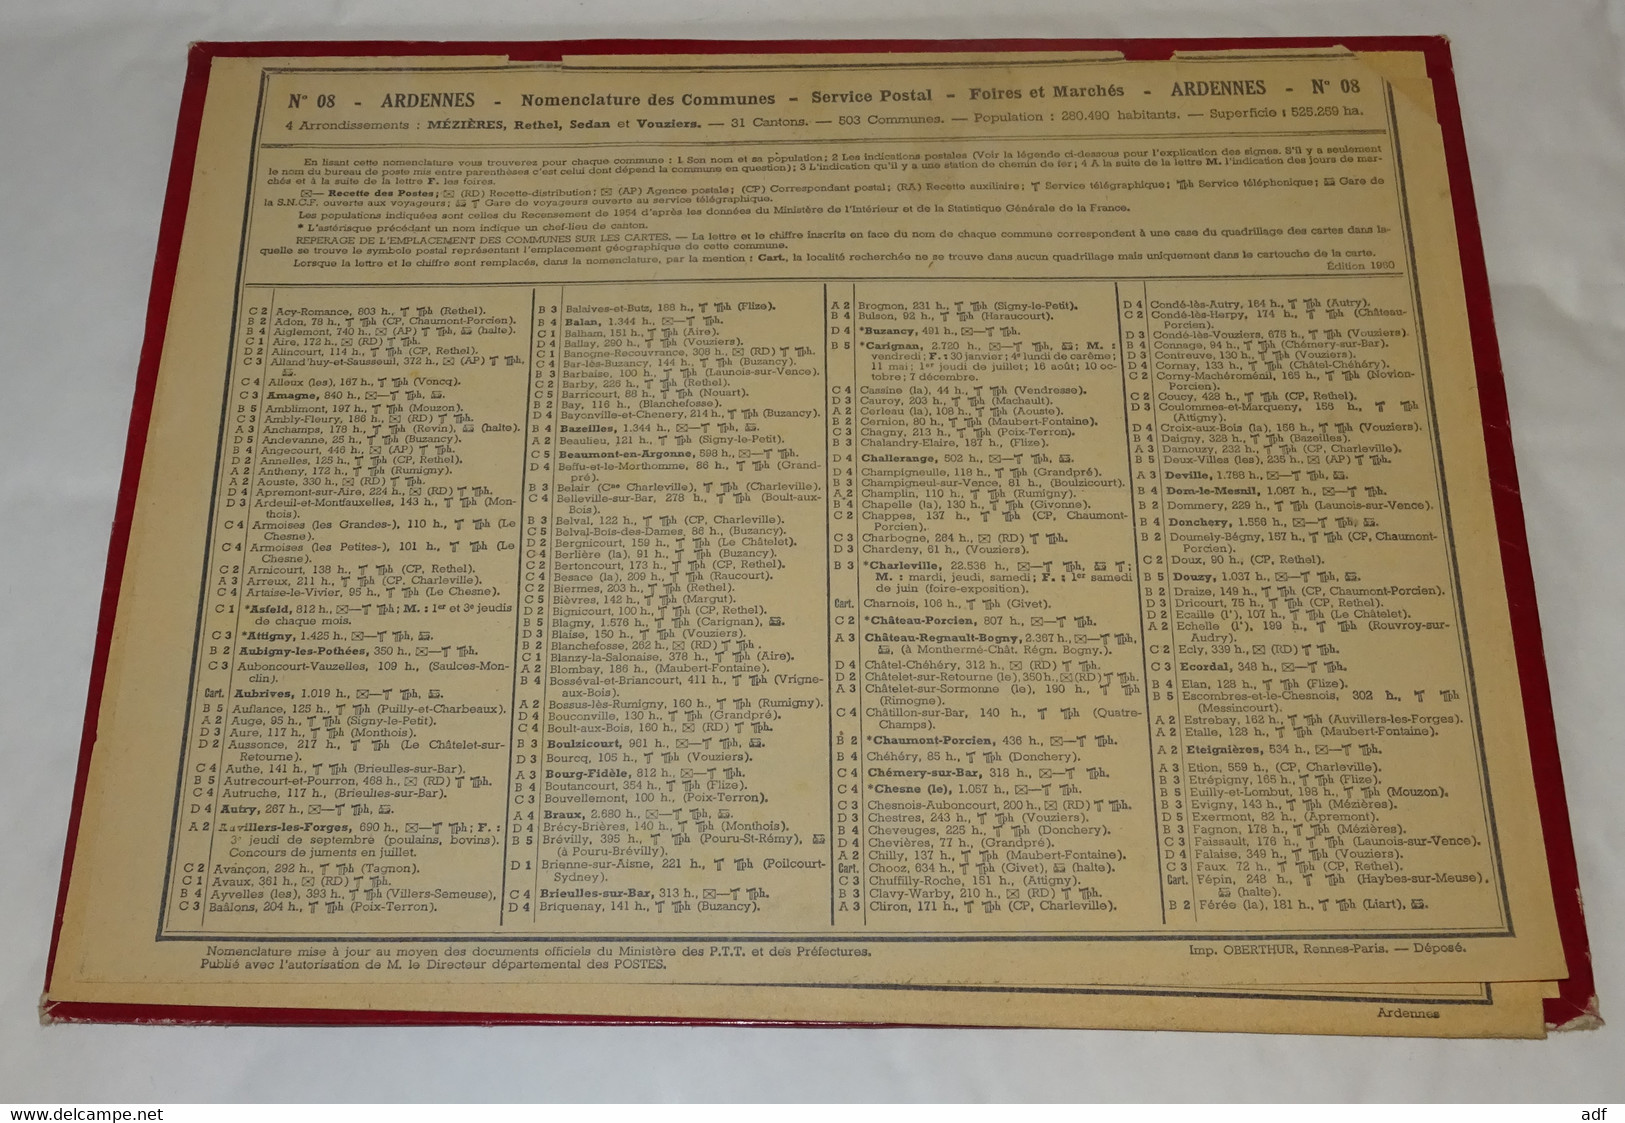 N° 08 - ARDENNES - Nomenclature des Communes - Service Postal - Foires et Marchés - ARDENNES - N° 08
4 Arrondissements : MÉZIÈRES, Rethel, Sedan et Vouziers. — 31 Cantons. — 503 Communes. — Population : 280.490 habitants. — Superficie : 525.259 ha.
En lisant cette nomenclature vous trouverez pour chaque commune : 1 Son nom et sa population; 2 Les indications postales (Voir la légende ci-dessous pour l'explication des signes. S'il y a seulement
le nom du bureau de poste mis entre parenthèses c'est celui dont dépend la commune en question); 3 L'indication qu'il y a une station de chemin de fer; 4 A la suite de la lettre M. l'indication des jours de mar-
chés et à la suite de la lettre F. les foires.
✉— Recette des Postes; ✉ (RD) Recette-distribution; ✉ (AP) Agence postale; (CP) Correspondant postal; (RA) Recette auxiliaire; T Service télégraphique; Tph Service téléphonique; Gare de
la S.N.C.F. ouverte aux voyageurs; T Gare de voyageurs ouverte au service télégraphique.
Les populations indiquées sont celles du Recensement de 1954 d'après les données du Ministère de l'Intérieur et de la Statistique Générale de la France.
* L'astérisque précédant un nom indique un chef-lieu de canton.
REPERAGE DE L'EMPLACEMENT DES COMMUNES SUR LES CARTES. — La lettre et le chiffre inscrits en face du nom de chaque commune correspondent à une case du quadrillage des cartes dans la-
quelle se trouve le symbole postal représentant l'emplacement géographique de cette commune.
Lorsque la lettre et le chiffre sont remplacés, dans la nomenclature, par la mention : Cart., la localité recherchée ne se trouve dans aucun quadrillage mais uniquement dans le cartouche de la carte.
Édition 1960
C 2 Acy-Romance, 803 h., T Tph (Rethel).
B 2 Adon, 78 h., T Tph (CP, Chaumont-Porcien).
B 4 Aiglemont, 740 h., ✉ (AP) T Tph, (halte).
C 1 Aire, 172 h., ✉ (RD) T Tph.
D 2 Alincourt, 114 h., T Tph (CP, Rethel).
C 3 Alland'huy-et-Sausseuil, 372 h., ✉ (AP) T Tph,
C 4 Alleux (les), 167 h., T Tph (Voncq).
C 3 Amagne, 840 h., ✉—T Tph,
B 5 Amblimont, 197 h., T Tph (Mouzon).
C 3 Ambly-Fleury, 186 h., ✉ (RD) T Tph.
A 3 Anchamps, 178 h., T Tph (Revin), (halte).
D 5 Andevanne, 25 h., T Tph (Buzancy).
B 4 Angecourt, 446 h., ✉ (AP) T Tph.
D 2 Annelles, 125 h., T Tph (CP, Rethel).
A 2 Antheny, 172 h., T Tph (Rumigny).
A 2 Aouste, 330 h., ✉ (RD) T Tph.
D 4 Apremont-sur-Aire, 224 h., ✉ (RD) T Tph.
D 3 Ardeuil-et-Montfauxelles, 143 h., T Tph (Mon-
thois).
C 4 Armoises (les Grandes-), 110 h., T Tph (Le
Chesne).
C 4 Armoises (les Petites-), 101 h., T Tph (Le
Chesne).
C 2 Arnicourt, 138 h., T Tph (CP, Rethel).
A 3 Arreux, 211 h., T Tph (CP, Charleville).
C 4 Artaise-le-Vivier, 95 h., T Tph (Le Chesne).
C 1 *Asfeld, 812 h., ✉—T Tph; M. : 1er et 3e jeudis
de chaque mois.
C 3 *Attigny, 1.425 h., ✉—T Tph,
B 2 Aubigny-les-Pothées, 350 h., ✉—T Tph.
C 3 Auboncourt-Vauzelles, 109 h., (Saulces-Mon-
clin).
Cart. Aubrives, 1.019 h., ✉—T Tph,
B 5 Auflance, 125 h., T Tph (Puilly-et-Charbeaux).
A 2 Auge, 95 h., T Tph (Signy-le-Petit).
D 3 Aure, 117 h., T Tph (Monthois).
D 2 Aussonce, 217 h., T Tph (Le Châtelet-sur-
Retourne).
C 4 Authe, 141 h., T Tph (Brieulles-sur-Bar).
B 5 Autrecourt-et-Pourron, 468 h., ✉ (RD) T Tph.
C 4 Autruche, 117 h., (Brieulles-sur-Bar).
D 4 Autry, 267 h., ✉—T Tph,
A 2 Auvillers-les-Forges, 690 h., ✉—T Tph; F. :
3e jeudi de septembre (poulains, bovins).
Concours de juments en juillet.
C 2 Avançon, 292 h., T Tph (Tagnon).
C 1 Avaux, 361 h., ✉ (RD) T Tph.
B 4 Ayvelles (les), 393 h., T Tph (Villers-Semeuse),
C 3 Baâlons, 204 h., T Tph (Poix-Terron).
B 3 Balaives-et-Butz, 188 h., T Tph (Flize).
B 4 Balan, 1.344 h., ✉—T Tph.
C 1 Balham, 151 h., T Tph (Aire).
D 4 Ballay, 290 h., T Tph (Vouziers).
C 1 Banogne-Recouvrance, 308 h., ✉ (RD) T Tph.
C 4 Bar-lès-Buzancy, 144 h., T Tph (Buzancy).
B 3 Barbaise, 100 h., T Tph (Launois-sur-Vence).
C 2 Barby, 226 h., T Tph (Rethel).
C 5 Barricourt, 88 h., T Tph (Nouart).
B 2 Bay, 116 h., (Blanchefosse).
D 4 Bayonville-et-Chenery, 214 h., T Tph (Buzancy).
B 4 Bazeilles, 1.344 h., ✉—T Tph,
A 2 Beaulieu, 121 h., T Tph (Signy-le-Petit).
C 5 Beaumont-en-Argonne, 598 h., ✉—T Tph.
D 4 Beffu-et-le-Morthomme, 86 h., T Tph (Grand-
pré).
B 3 Belair (Cne Charleville), T Tph (Charleville).
C 4 Belleville-sur-Bar, 278 h., T Tph (Boult-aux-
Bois).
B 3 Belval, 122 h., T Tph (CP, Charleville).
C 5 Belval-Bois-des-Dames, 86 h., (Buzancy).
D 2 Bergnicourt, 159 h., T Tph (Le Châtelet).
C 4 Berlière (la), 91 h., T Tph (Buzancy).
C 2 Bertoncourt, 173 h., T Tph (CP, Rethel).
C 4 Besace (la), 209 h., T Tph (Raucourt).
C 2 Biermes, 203 h., T Tph (Rethel).
C 5 Bièvres, 142 h., T Tph (Margut).
D 2 Bignicourt, 100 h., T Tph (CP, Rethel).
B 5 Blagny, 1.576 h., T Tph (Carignan),
D 3 Blaise, 150 h., T Tph (Vouziers).
B 2 Blanchefosse, 262 h., ✉ (RD) T Tph.
C 1 Blanzy-la-Salonaise, 378 h., T Tph (Aire).
A 2 Blombay, 186 h., (Maubert-Fontaine).
B 4 Bosséval-et-Briancourt, 411 h., T Tph (Vrigne-
aux-Bois).
A 2 Bossus-lès-Rumigny, 160 h., T Tph (Rumigny).
D 4 Bouconville, 130 h., T Tph (Grandpré).
C 4 Boult-aux-Bois, 160 h., ✉ (RD) T Tph.
B 3 Boulzicourt, 961 h., ✉—T Tph,
D 3 Bourcq, 105 h., T Tph (Vouziers).
A 3 Bourg-Fidèle, 812 h., ✉—T Tph.
B 4 Boutancourt, 354 h., T Tph (Flize).
C 3 Bouvellemont, 100 h., (Poix-Terron).
A 4 Braux, 2.680 h., ✉—T Tph,
D 4 Brécy-Brières, 140 h., T Tph (Monthois).
B 5 Brévilly, 395 h., T Tph (Pouru-St-Rémy),
(à Pouru-Brévilly).
D 1 Brienne-sur-Aisne, 221 h., T Tph (Poilcourt-
Sydney).
C 4 Brieulles-sur-Bar, 313 h., ✉—T Tph.
D 4 Briquenay, 141 h., T Tph (Buzancy).
A 2 Brognon, 231 h., T Tph (Signy-le-Petit).
B 4 Bulson, 92 h., T Tph (Haraucourt).
D 4 *Buzancy, 491 h., ✉—T Tph.
B 5 *Carignan, 2.720 h., ✉—T Tph, ; M. :
vendredi; F. : 30 janvier; 4e lundi de carême;
11 mai; 1er jeudi de juillet; 16 août; 10 oc-
tobre; 7 décembre.
C 4 Cassine (la), 44 h., T Tph (Vendresse).
D 3 Cauroy, 203 h., T Tph (Machault).
A 2 Cerleau (la), 108 h., T Tph (Aouste).
B 2 Cernion, 80 h., T Tph (Maubert-Fontaine).
C 3 Chagny, 213 h., T Tph (Poix-Terron).
B 3 Chalandry-Elaire, 187 h., (Flize).
D 4 Challerange, 502 h., ✉—T Tph,
D 4 Champigneulle, 118 h., T Tph (Grandpré).
B 3 Champigneul-sur-Vence, 81 h., (Boulzicourt).
A 2 Champlin, 110 h., T Tph (Rumigny).
B 4 Chapelle (la), 130 h., T Tph (Givonne).
C 2 Chappes, 137 h., T Tph (CP, Chaumont-
Porcien).
C 3 Charbogne, 284 h., ✉ (RD) T Tph.
D 3 Chardeny, 61 h., (Vouziers).
B 3 *Charleville, 22.536 h., ✉—T Tph, T;
M. : mardi, jeudi, samedi; F. : 1er samedi
de juin (foire-exposition).
Cart. Charnois, 106 h., T Tph (Givet).
C 2 *Château-Porcien, 807 h., ✉—T Tph.
A 3 Château-Regnault-Bogny, 2.367 h., ✉—T Tph,
(à Monthermé-Chât. Régn. Bogny.).
D 4 Châtel-Chéhéry, 312 h., ✉ (RD) T Tph.
D 2 Châtelet-sur-Retourne (le), 350 h., ✉ (RD) T Tph.
A 3 Châtelet-sur-Sormonne (le), 190 h., T Tph
(Rimogne).
C 4 Châtillon-sur-Bar, 140 h., T Tph (Quatre-
Champs).
B 2 *Chaumont-Porcien, 436 h., ✉—T Tph.
B 4 Chéhéry, 85 h., T Tph (Donchery).
C 4 Chémery-sur-Bar, 318 h., ✉—T Tph.
C 4 *Chesne (le), 1.057 h., ✉—T Tph.
C 3 Chesnois-Auboncourt, 200 h., ✉ (RD) T Tph.
D 3 Chestres, 243 h., T Tph (Vouziers).
B 4 Cheveuges, 225 h., T Tph (Donchery).
D 4 Chevières, 77 h., (Grandpré).
A 2 Chilly, 137 h., T Tph (Maubert-Fontaine).
Cart. Chooz, 634 h., T Tph (Givet), (halte).
C 3 Chuffilly-Roche, 151 h., (Attigny).
B 3 Clavy-Warby, 210 h., ✉ (RD) T Tph.
A 3 Cliron, 171 h., T Tph (CP, Charleville).
D 4 Condé-lès-Autry, 164 h., T Tph (Autry).
C 2 Condé-lès-Herpy, 174 h., T Tph (Château-
Porcien).
D 3 Condé-lès-Vouziers, 676 h., T Tph (Vouziers).
B 4 Connage, 94 h., T Tph (Chémery-sur-Bar).
D 3 Contreuve, 130 h., T Tph (Vouziers).
D 4 Cornay, 133 h., T Tph (Châtel-Chéhéry).
C 2 Corny-Machéroménil, 165 h., T Tph (Novion-
Porcien).
C 2 Coucy, 428 h., T Tph (CP, Rethel).
D 3 Coulommes-et-Marqueny, 156 h., T Tph
(Attigny)
D 4 Croix-aux-Bois (la), 156 h., T Tph (Vouziers).
B 4 Daigny, 328 h., T Tph (Bazeilles).
A 3 Damouzy, 232 h., T Tph (CP, Charleville).
B 5 Deux-Villes (les), 235 h., ✉ (AP) T Tph.
A 3 Deville, 1.788 h., ✉—T Tph,
B 4 Dom-le-Mesnil, 1.087 h., ✉—T Tph.
B 2 Dommery, 229 h., T Tph (Launois-sur-Vence).
B 4 Donchery, 1.556 h., ✉—T Tph,
B 2 Doumely-Bégny, 157 h., T Tph (CP, Chaumont-
Porcien).
C 2 Doux, 90 h., (CP, Rethel).
B 5 Douzy, 1.037 h., ✉—T Tph,
B 2 Draize, 149 h., T Tph (CP, Chaumont-Porcien).
D 3 Dricourt, 75 h., T Tph (CP, Rethel).
D 2 Ecaille (l'), 107 h., T Tph (Le Châtelet).
A 2 Echelle (l'), 199 h., T Tph (Rouvroy-sur-
Audry).
C 2 Ecly, 339 h., ✉ (RD) T Tph.
C 3 Ecordal, 348 h., ✉—T Tph.
B 4 Elan, 128 h., T Tph (Flize).
B 5 Escombres-et-le-Chesnois, 302 h., T Tph
(Messincourt).
A 2 Estrebay, 162 h., T Tph (Auvillers-les-Forges).
A 2 Etalle, 128 h., T Tph (Maubert-Fontaine).
A 2 Eteignières, 534 h., ✉—T Tph.
A 3 Etion, 559 h., T Tph (CP, Charleville).
B 3 Etrépigny, 165 h., T Tph (Flize).
B 5 Euilly-et-Lombut, 198 h., T Tph (Mouzon).
B 3 Evigny, 143 h., T Tph (Mézières).
D 5 Exermont, 82 h., (Apremont).
B 3 Fagnon, 178 h., T Tph (Mézières).
C 3 Faissault, 176 h., T Tph (Launois-sur-Vence).
D 4 Falaise, 349 h., T Tph (Vouziers).
C 3 Faux, 72 h., T Tph (CP, Rethel).
Cart. Fépin, 248 h., T Tph (Haybes-sur-Meuse),
(halte).
B 2 Férée (la), 181 h., T Tph (Liart),
Nomenclature mise à jour au moyen des documents officiels du Ministère des P.T.T. et des Préfectures.
Publié avec l'autorisation de M. le Directeur départemental des POSTES.
Imp. OBERTHUR, Rennes-Paris. — Déposé.
Ardennes
www.delcampe.net
adf